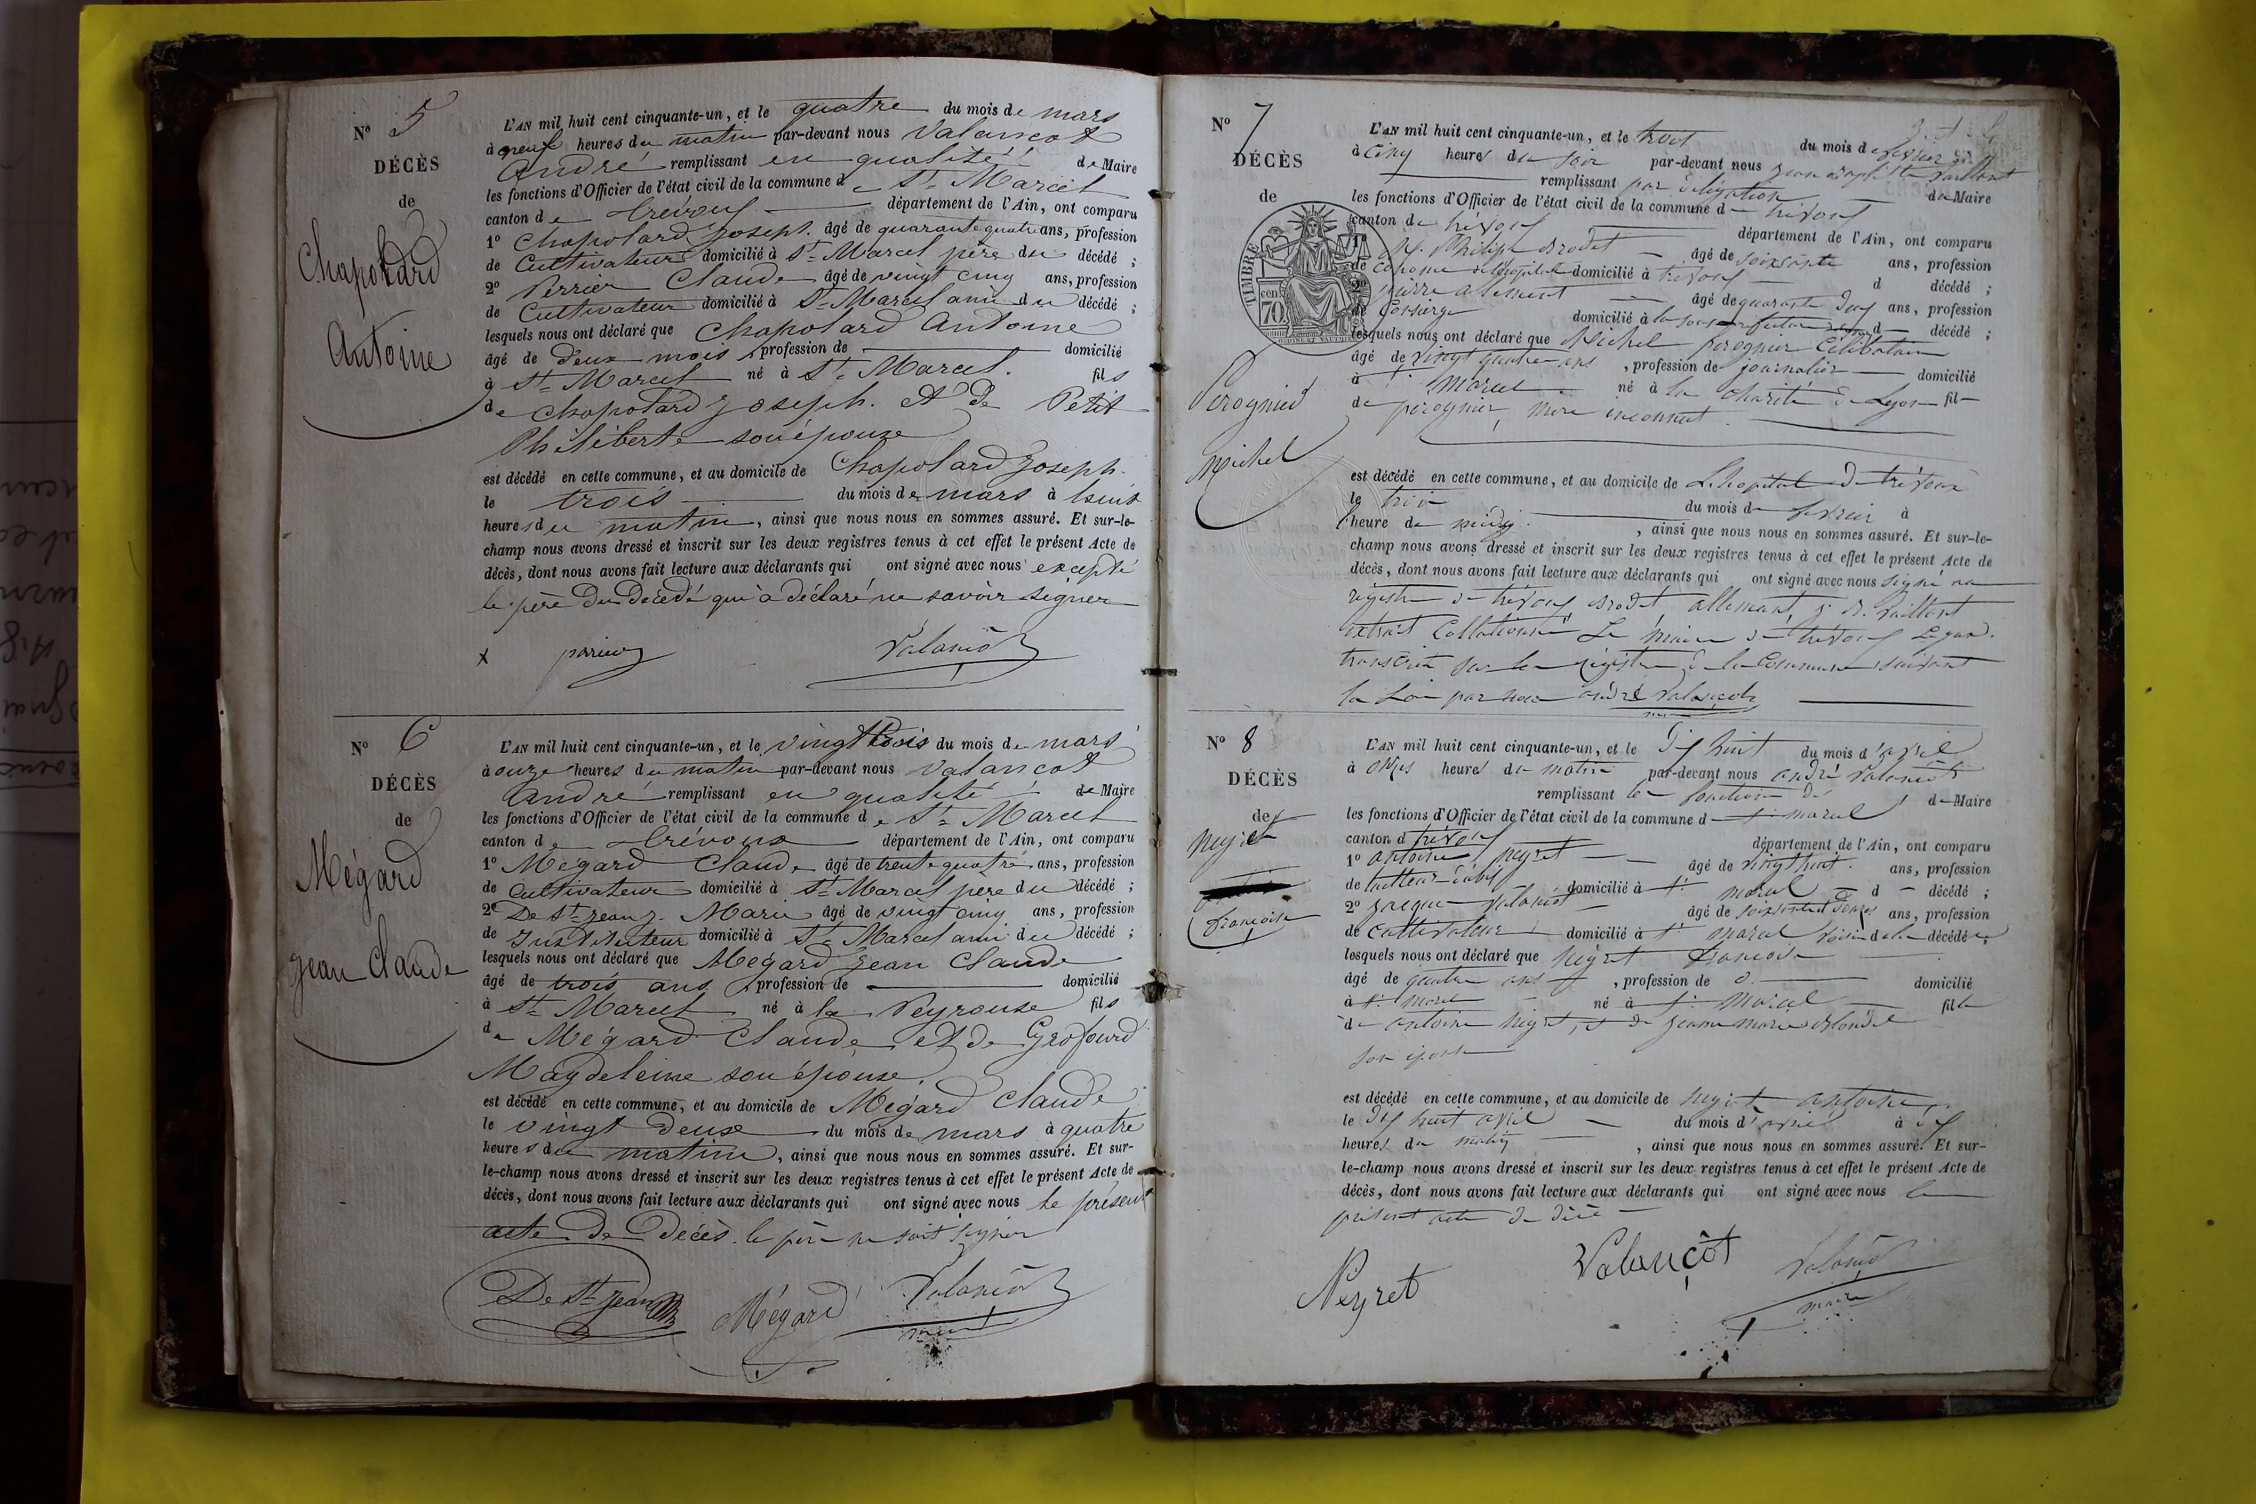 N° 5
DÉCÈS
de
Chapolard
Antoine
L'AN mil huit cent cinquante-un, et le quatre du mois de mars
à neuf heures du matin par-devant nous Valancot
André remplissant en qualité de Maire
les fonctions d'Officier de l'état civil de la commune de St Marcel
canton de Trévoux département de l'Ain, ont comparu
1° Chapolard Joseph. âgé de quarante quatre ans, profession
de Cultivateur domicilié à St Marcel père du décédé ;
2° Perrier Claude âgé de vingt cinq ans, profession
de Cultivateur domicilié à St Marcel ami du décédé ;
lesquels nous ont déclaré que Chapolard Antoine
âgé de deux mois, profession de domicilié
à St Marcel né à St Marcel. fils
de Chapolard Joseph. Et de Petit
Philiberte son épouse
est décédé en cette commune, et au domicile de Chapolard Joseph.
le trois du mois de mars à huit
heures du matin, ainsi que nous nous en sommes assuré. Et sur-le-
champ nous avons dressé et inscrit sur les deux registres tenus à cet effet le présent Acte de
décès, dont nous avons fait lecture aux déclarants qui ont signé avec nous excepté
le père du décédé qui à déclaré ne savoir signer
x Valancot
N° 6
DÉCÈS
de
Mégard
Jean Claude
L'AN mil huit cent cinquante-un, et le vingt trois du mois de mars
à onze heures du matin par-devant nous Valancot
André remplissant en qualité de Maire
les fonctions d'Officier de l'état civil de la commune de St Marcel
canton de Trévoux département de l'Ain, ont comparu
1° Mégard Claude âgé de trente quatre ans, profession
de Cultivateur domicilié à St Marcel père du décédé ;
2° De St Jean J. Marie âgé de vingt cinq ans, profession
de Instituteur domicilié à St Marcel ami du décédé ;
lesquels nous ont déclaré que Mégard Jean Claude
âgé de trois ans, profession de domicilié
à St Marcel né à la Peyrouse fils
de Mégard Claude et de Gyrofourd
Magdeleine son épouse
est décédé en cette commune, et au domicile de Mégard Claude
le vingt deux du mois de mars à quatre
heures du matin, ainsi que nous nous en sommes assuré. Et sur-
le-champ nous avons dressé et inscrit sur les deux registres tenus à cet effet le présent Acte de
décès, dont nous avons fait lecture aux déclarants qui ont signé avec nous le présent
acte de Décès. le père ne sait signer
De St Jean Mégard Valancot
maire
N° 7
DÉCÈS
de
TIMBRE
70 cen.
Perognier
Michel
L'AN mil huit cent cinquante-un, et le trois du mois de février
à cinq heures du soir par-devant nous Jean Baptiste Vaillant
remplissant par délégation de Maire
les fonctions d'Officier de l'état civil de la commune de trévoux
canton de trévoux département de l'Ain, ont comparu
1° Philippe Brodet âgé de soixante ans, profession
de domicilié à trévoux d décédé ;
2° pierre alemant âgé de quarante deux ans, profession
de Concierge domicilié à la sous préfecture d décédé ;
lesquels nous ont déclaré que Michel perognier Célibataire
âgé de vingt quatre ans, profession de journalier domicilié
à St Marcel né à la Charité de Lyon fil
de perognier, mère inconnue
est décédé en cette commune, et au domicile de L'hopital de trévoux
le trois du mois de février à
l'heure de midy, ainsi que nous nous en sommes assuré. Et sur-le-
champ nous avons dressé et inscrit sur les deux registres tenus à cet effet le présent Acte de
décès, dont nous avons fait lecture aux déclarants qui ont signé avec nous signé au
registre de trévoux Brodet allemant J. B. Vaillant
extrait Collationné Le maire de trévoux
transcrit sur le registre de la Commune suivant
la Loi par nous andré Valancot
N° 8
DÉCÈS
de
Neyret
Françoise
L'AN mil huit cent cinquante-un, et le dix huit du mois d'avril
à onze heures du matin par-devant nous andré Valancot
remplissant les fonctions de de Maire
les fonctions d'Officier de l'état civil de la commune d St marcel
canton d trévoux département de l'Ain, ont comparu
1° antoine neyret âgé de vingt huit ans, profession
de domicilié à St marcel d décédé ;
2° Jacque Valancot âgé de ans, profession
de Cultivateur domicilié à St marcel voisin de la décédée ;
lesquels nous ont déclaré que neyret françoise
âgé de quatre ans, profession de domicilié
à St marcel né à St marcel fille
de antoine neyret, et de Jeanne marie Blondel
son épouse
est décédé en cette commune, et au domicile de neyret antoine
le dix huit avril du mois d'avril à dix
heures du matin, ainsi que nous nous en sommes assuré. Et sur-
le-champ nous avons dressé et inscrit sur les deux registres tenus à cet effet le présent Acte de
décès, dont nous avons fait lecture aux déclarants qui ont signé avec nous le
présent acte de décès
Neyret Valançot Valancot
maire